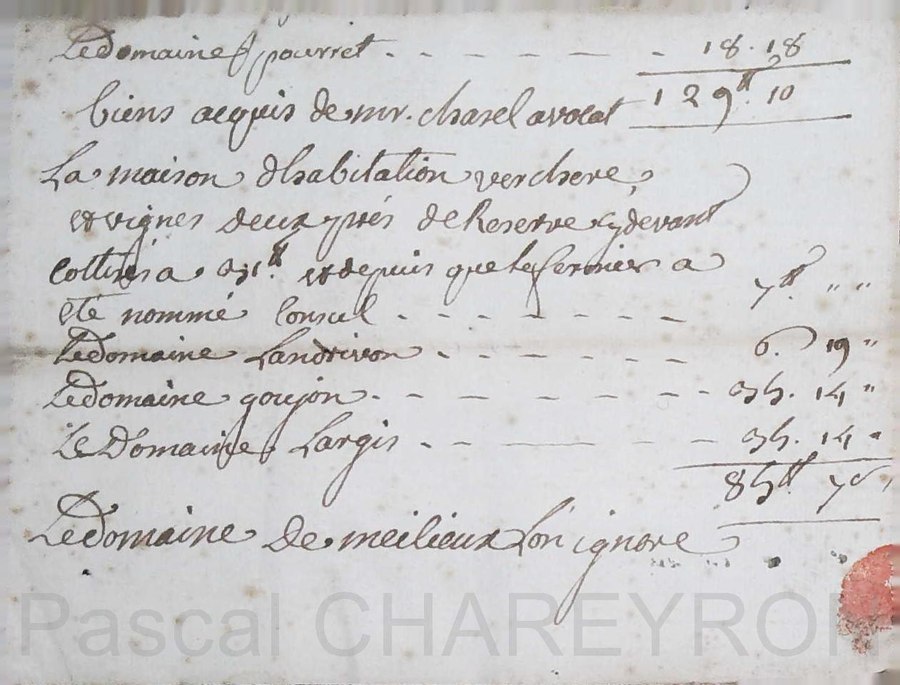 Le domaine pourret - - - - - - 18 . 18
129tt. 10
biens acquis de mr. chasel avocat
La maison dhabitation verchere,
et vignes deux prés de Reserve cy devant
cottisés a 31tt. et depuis que le fermier a
été nommé Consul - - - - - - 7tt. " "
Le domaine Landrivon - - - - - 6. 19 "
Le domaine goujon - - - - - - 35. 14 "
Le Domaine Largis - - - - - 35. 14 "
85tt 7s
Le domaine de meilieux Lon ignore
Pascal CHAREYRON